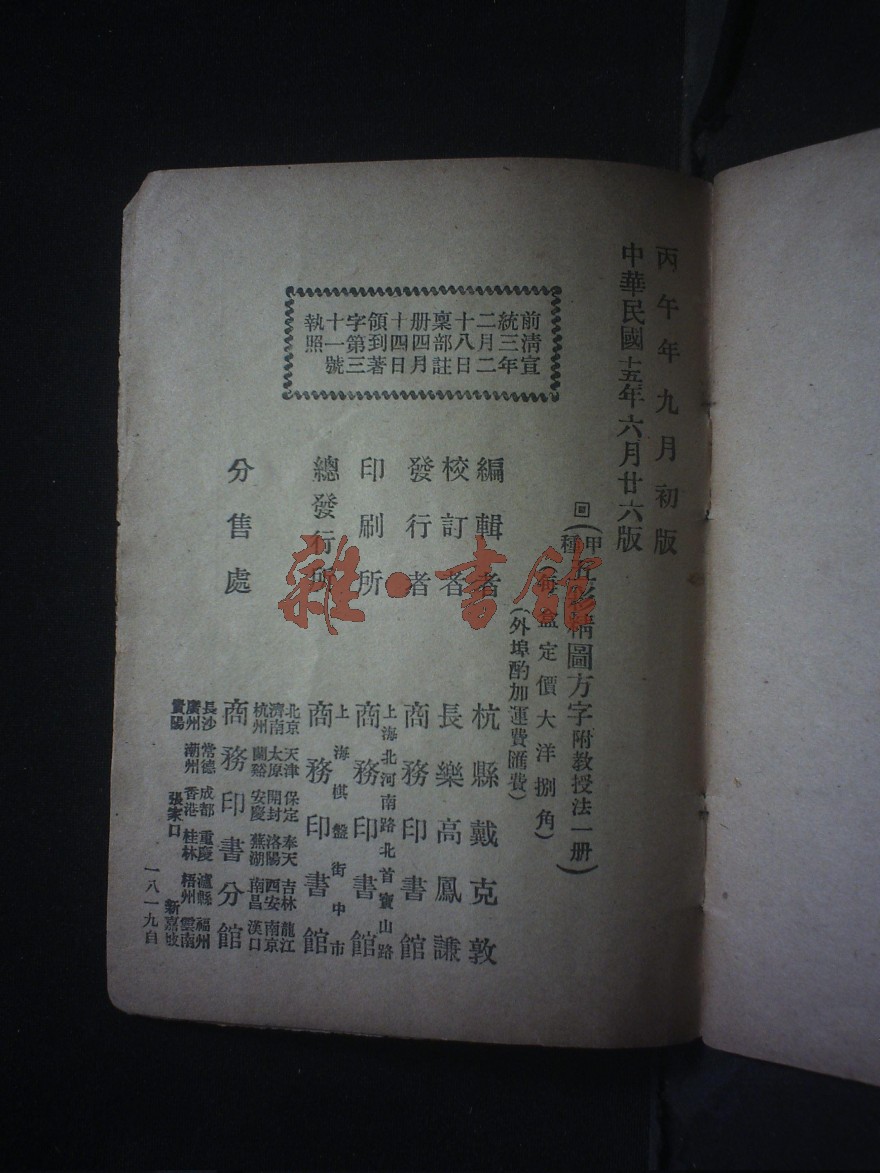 丙午年九月初版
中華民國十五年六月廿六版
回(甲種五彩精圖方字附教授法一册)
(每盒定價大洋捌角)
(外埠酌加運費匯費)
前清宣
統三年
二月二
十八日
稟部註
册四月
十四日
領到著
字第三
十一號
執照
編輯者 杭縣戴克敦
校訂者 長樂高鳳謙
發行者 商務印書館
上海北河南路北首寶山路
印刷所 商務印書館
上海棋盤街中市
總發行所 商務印書館
北京 天津 保定 奉天 吉林 龍江
濟南 太原 開封 洛陽 西安 南京
杭州 蘭谿 安慶 蕪湖 南昌 漢口
分售處 商務印書分館
長沙 常德 成都 重慶 瀘縣 福州
廣州 潮州 香港 桂林 梧州 雲南
貴陽 張家口 新嘉坡
一八一九自
雜·書館